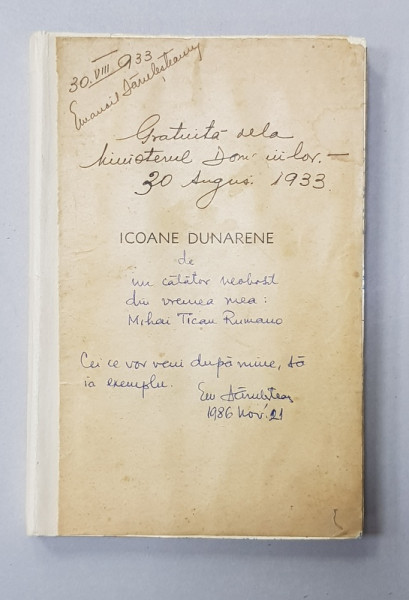 30.VIII.933
Emanoil Bărulesteanu
Gratuită dela
Ministerul Domeniilor.—
30 August 1933
ICOANE DUNARENE
de
un călător neobosit
din vremea mea:
Mihai Tican Rumano
Cei ce vor veni după mine, să
ia exemplu.
Em
1986 Nov. 21